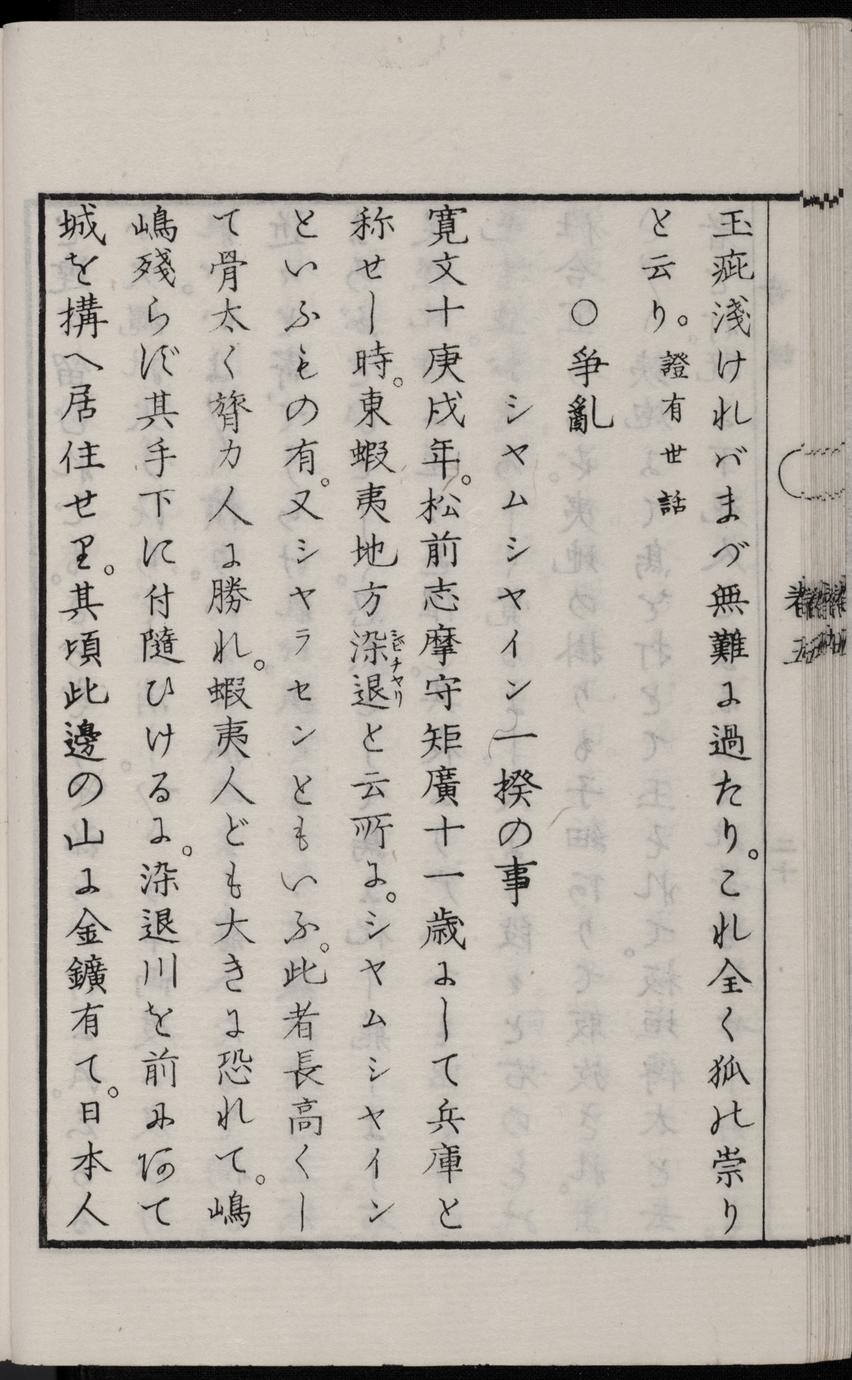 玉疵淺ければまづ無難に過たり。これ全く狐の祟り
と云り。證有世話
〇爭亂
シヤムシヤイン一揆の事
寛文十庚戌年。松前志摩守矩廣十一歳にして兵庫と
称せし時。東蝦夷地方染退シビチヤリと云所に。シヤムシヤイン
といふもの有。又シヤラセンともいふ。此者長高くし
て骨太く膂力人に勝れ。蝦夷人ども大きに恐れて。嶋
嶋殘らず其手下に付隨ひける に。染退川を前にあて
城を搆へ居住せり。其頃此邊の山に金鑛有て。日本人